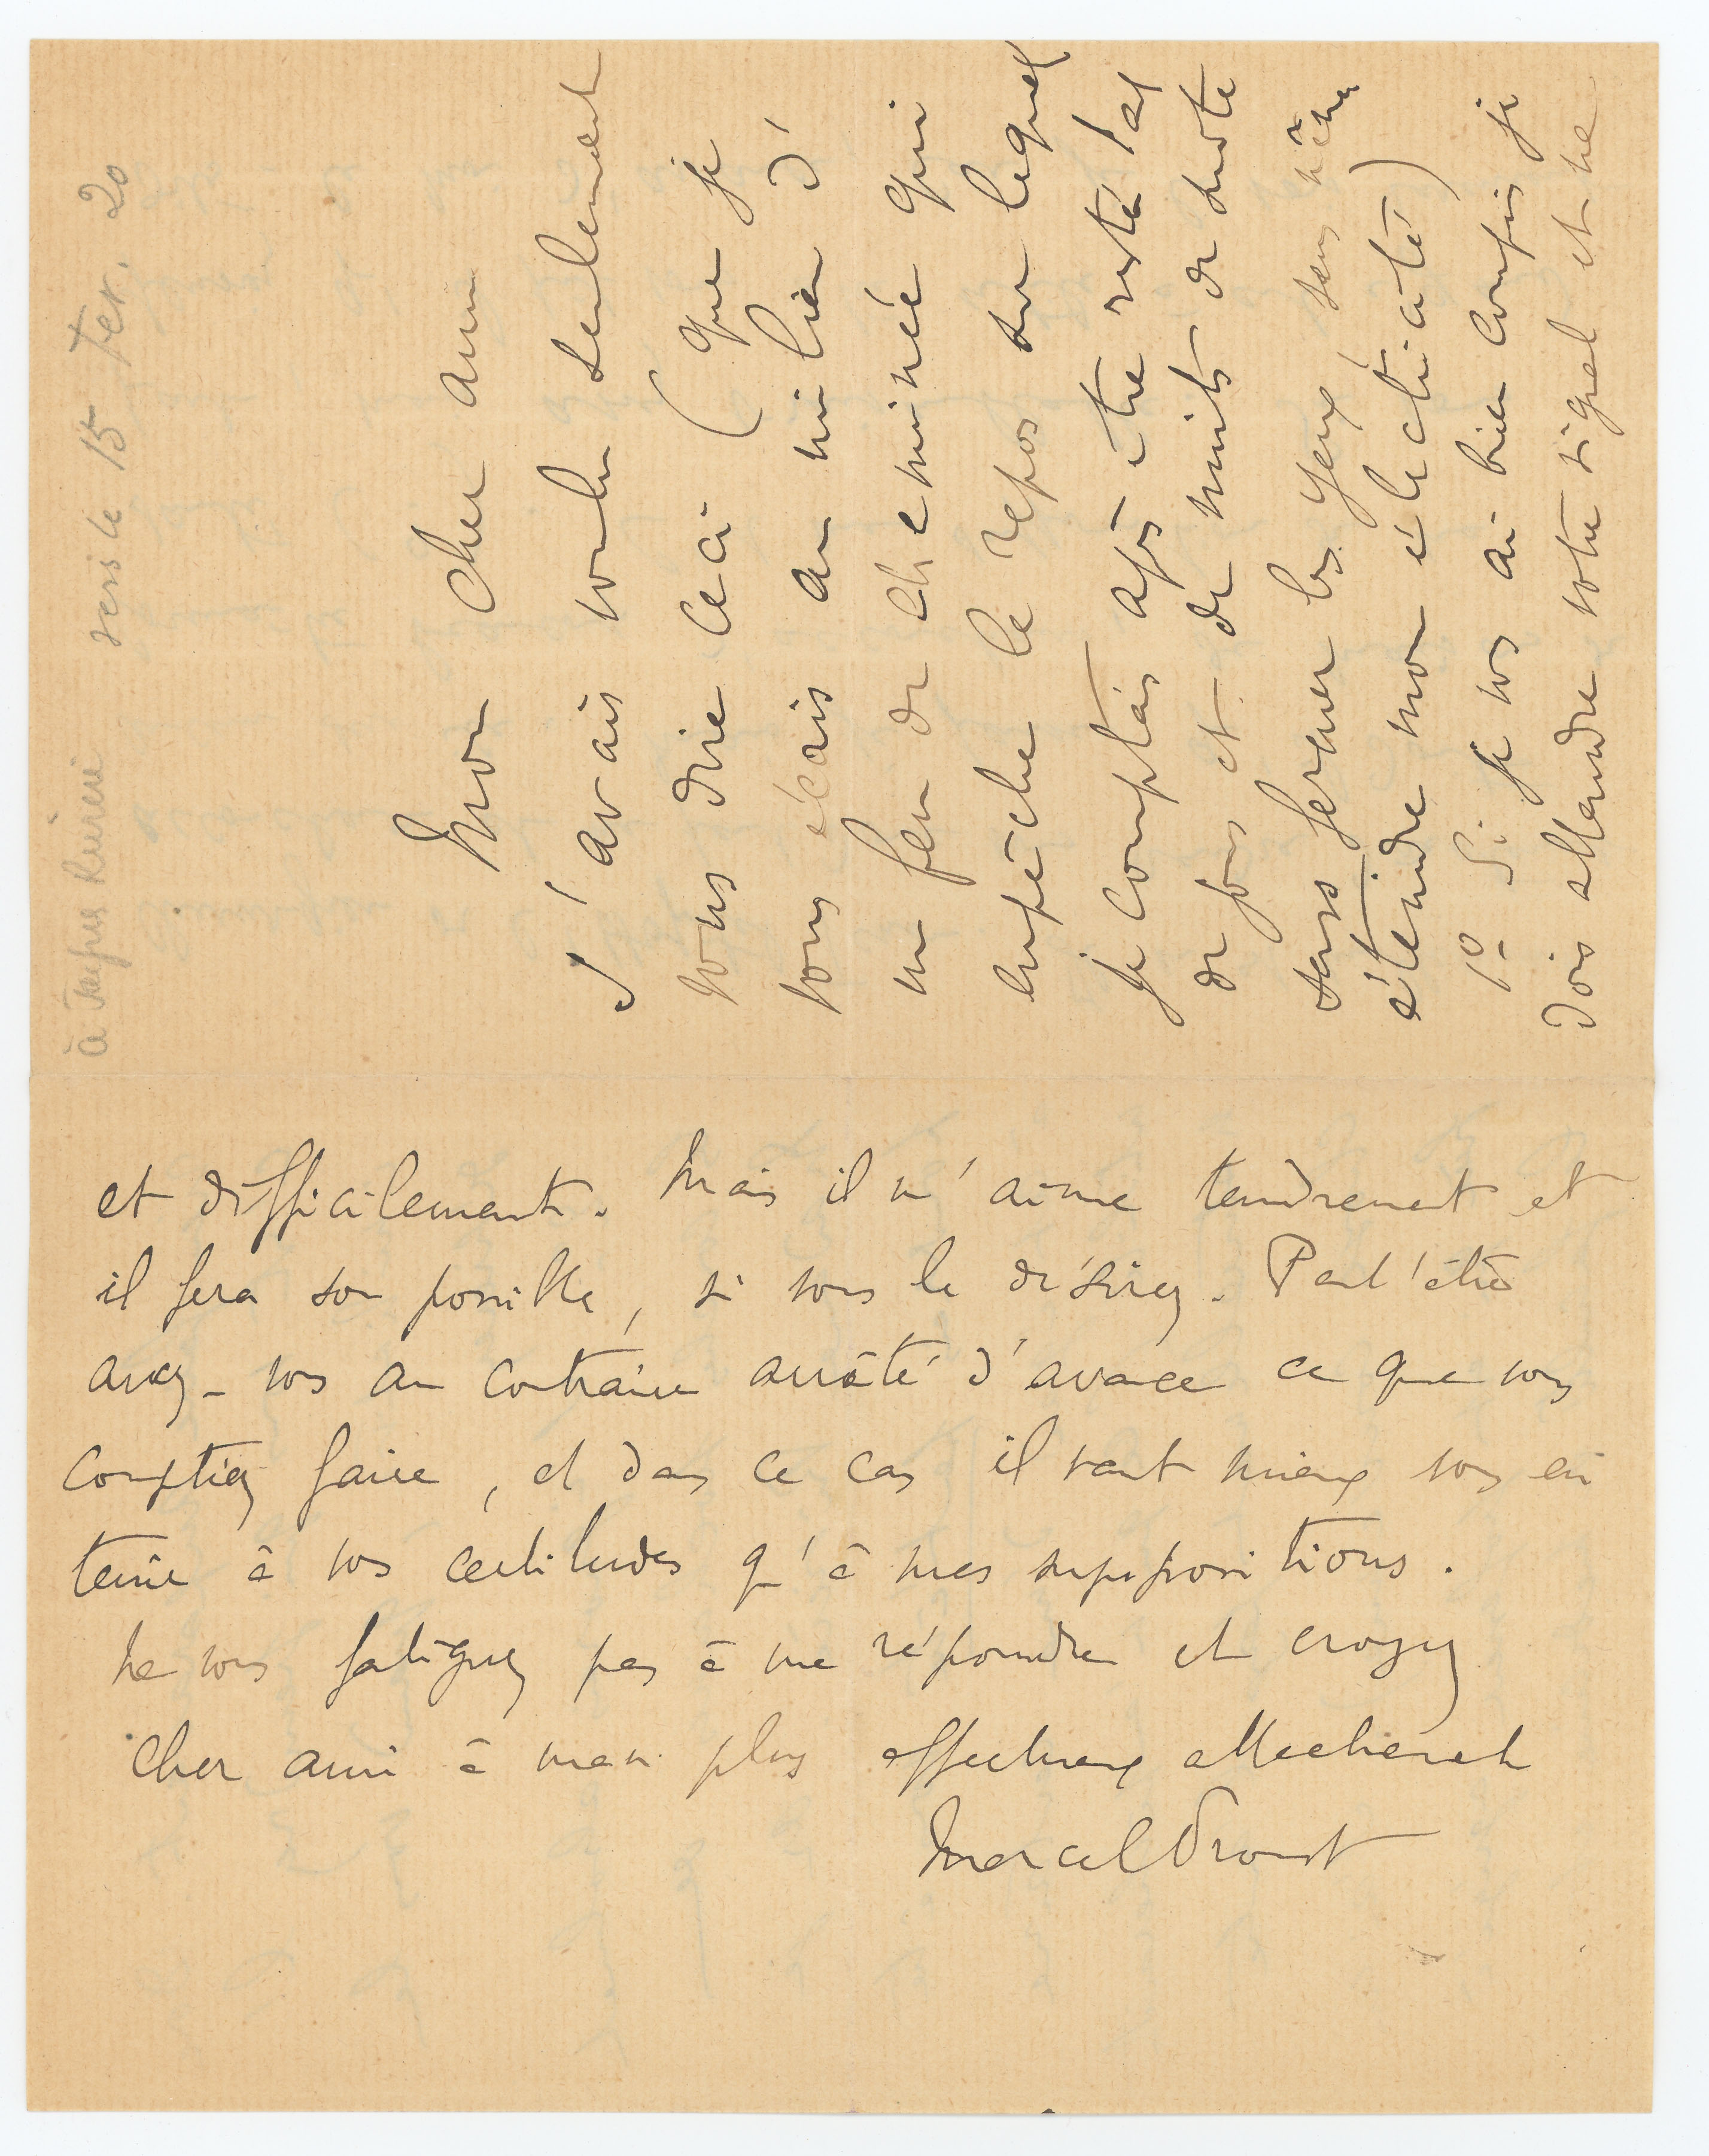 à Jacques Rivière vers le 15 Fev. 20
Mon cher ami
J'avais voulu seulement
vous dire ceci (que je
vous écris au milieu d'
un feu de cheminée qui
empêche le repos sur lequel
je comptais après être resté tant
de jours et de nuits de suite
sans fermer les yeux sans même
éteindre mon électricité)
1º Si je vous ai bien compris je
dois attendre votre signal et ne
et difficilement. Mais il m'aime tendrement et
il fera son possible, si vous le désirez. Peut'être
avez-vous au contraire arrêté d'avance ce que vous
comptiez faire, et dans ce cas il vaut mieux vous en
tenir à vos certitudes qu'à mes suppositions.
Ne vous fatiguez pas à me répondre et croyez
cher ami à mon plus affectueux attachement
Marcel Proust